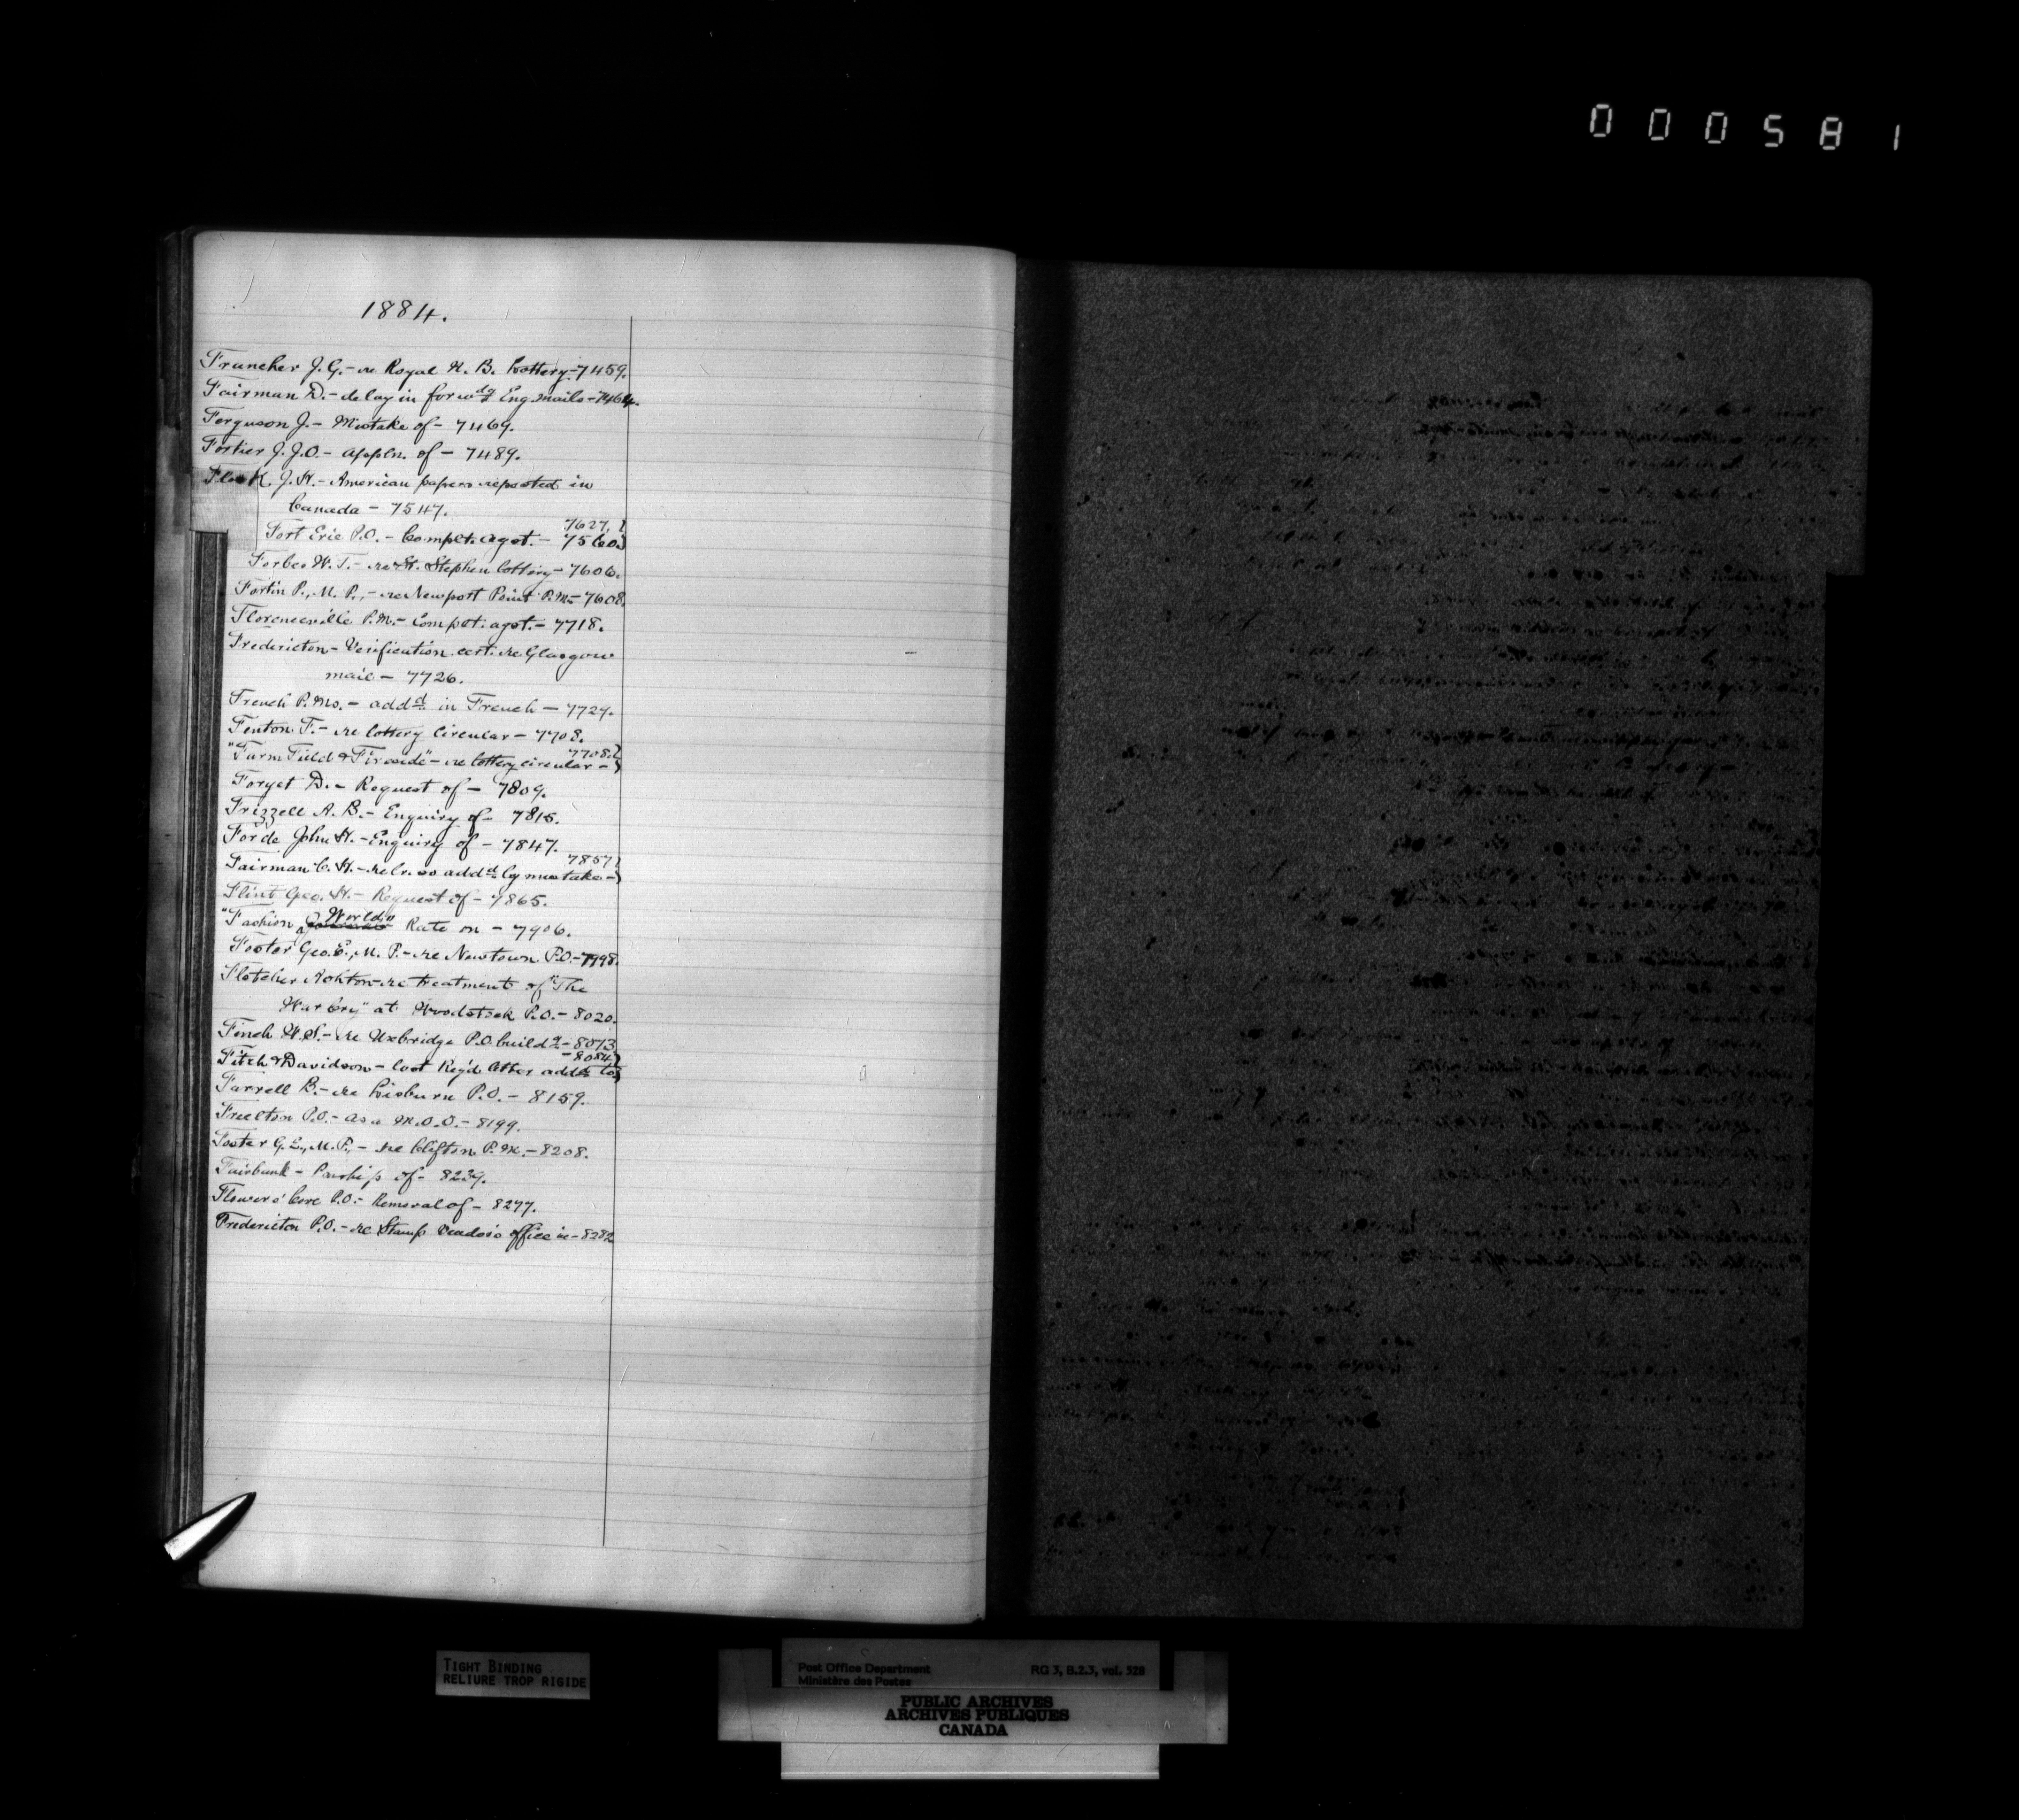 000581
1884.
Francher J. G. - re Royal N. B. Lottery - 7459.
Fairman D. - delay in forwdg Eng. mails - 7464.
Ferguson J. - Mistake of - 7469.
Fortier J. J. O. - appln. of - 7489.
J. H. - American papers reposted in
Canada - 7547.
7627. }
Fort Erie P.O. - Complt. agst. - 7560. }
Forbes W. T. - re St. Stephen lottery - 7606.
Fortin P., M. P., - re Newport Point P.M. - 7608.
Florenceville P.M. - Complt. agst. - 7718.
Fredericton - Verification cert. re Glasgow
mail - 7726.
French P. Ms. - addd in French - 7727.
Fenton F. - re lottery circular - 7708.
7708. }
"Farm Field & Fireside" - re lottery circular - }
Forget D. - Request of - 7809.
Frizzell A. B. - Enquiry of - 7815.
Forde John H. - Enquiry of - 7847.
7857 }
Fairman C. H. - re lr. so addd by mistake - }
Flint Geo. H. - Request of - 7865.
World"
"Fashion Rate on - 7906.
Foster Geo. E., M. P. - re Newtown P.O. - 7998.
Fletcher Ashton - re treatment of "The
War Cry" at Woodstock P.O. - 8020.
Finch W. S. - re Uxbridge P.O. buildg - 8073
- 8084 }
Fitch & Davidson - lost Reg'd letter addd to }
Farrell B. - re Lisburn P.O. - 8159.
Freelton P.O. - as a M.O.O. - 8199.
Foster G. E., M. P., - re Clifton P. M. - 8208.
Fairbank - Pmship of - 8239.
Flowers' Cove P.O. - Removal of - 8277.
Fredericton P.O. - re Stamp Vendor's office in - 8282
TIGHT BINDING
RELIURE TROP RIGIDE
Post Office Department RG 3, B.2.3, vol. 528
Ministère des Postes
PUBLIC ARCHIVES
ARCHIVES PUBLIQUES
CANADA